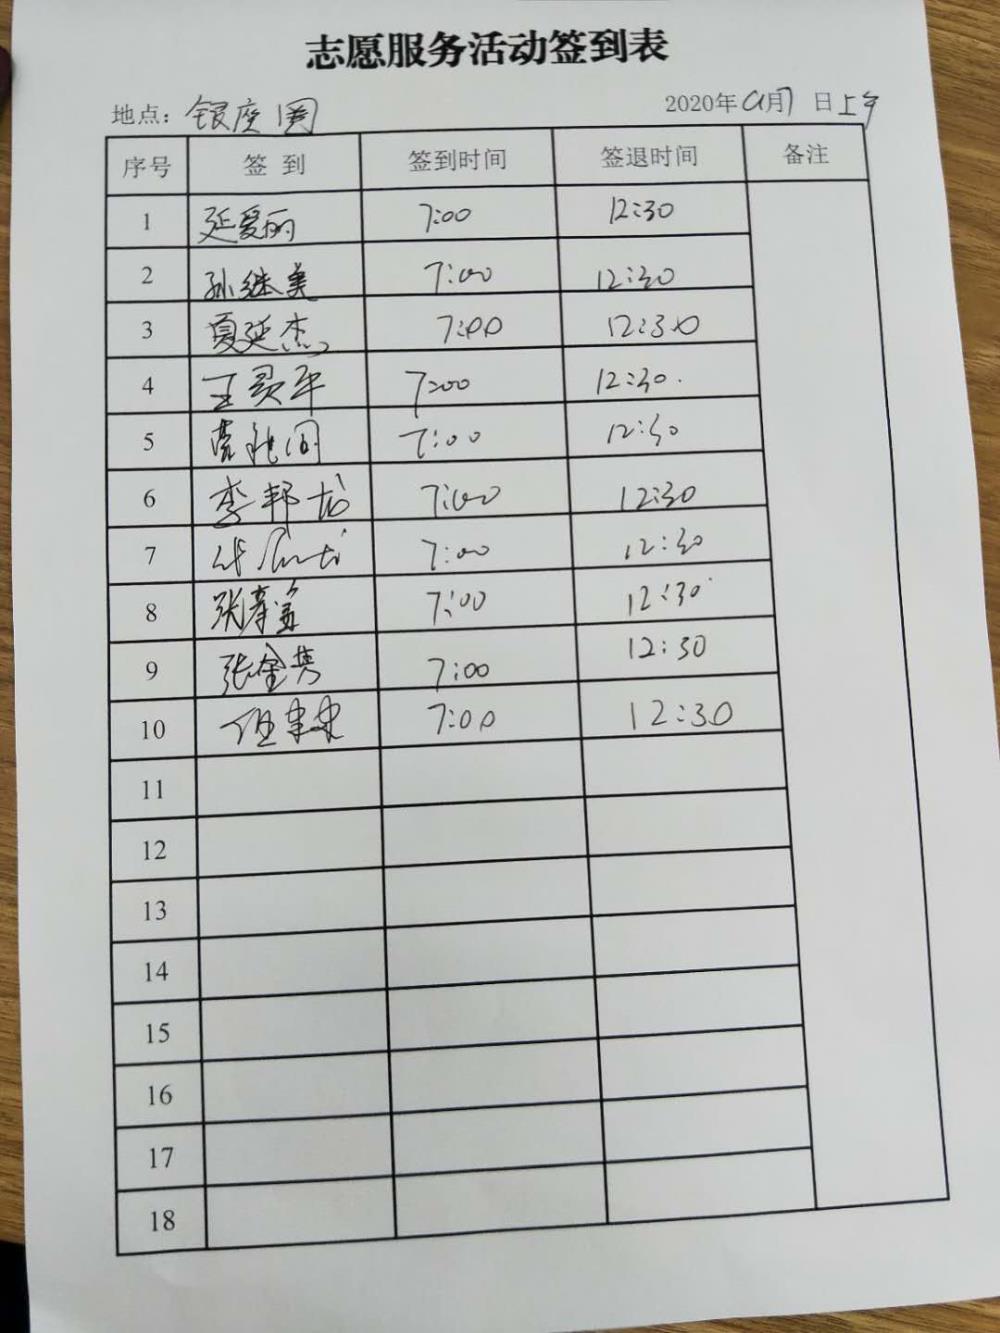 志愿服务活动签到表
地点: 银座 2020年 月7日上午
序号 签到 签到时间 签退时间 备注
1 延爱丽 7:00 12:30
2 孙继美 7:00 12:30
3 夏延杰 7:00 12:30
4 王 平 7:00 12:30
5 7:00 12:30
6 李邦龙 7:00 12:30
7 7:00 12:30
8 张 7:00 12:30
9 张金 7:00 12:30
10 7:00 12:30
11
12
13
14
15
16
17
18